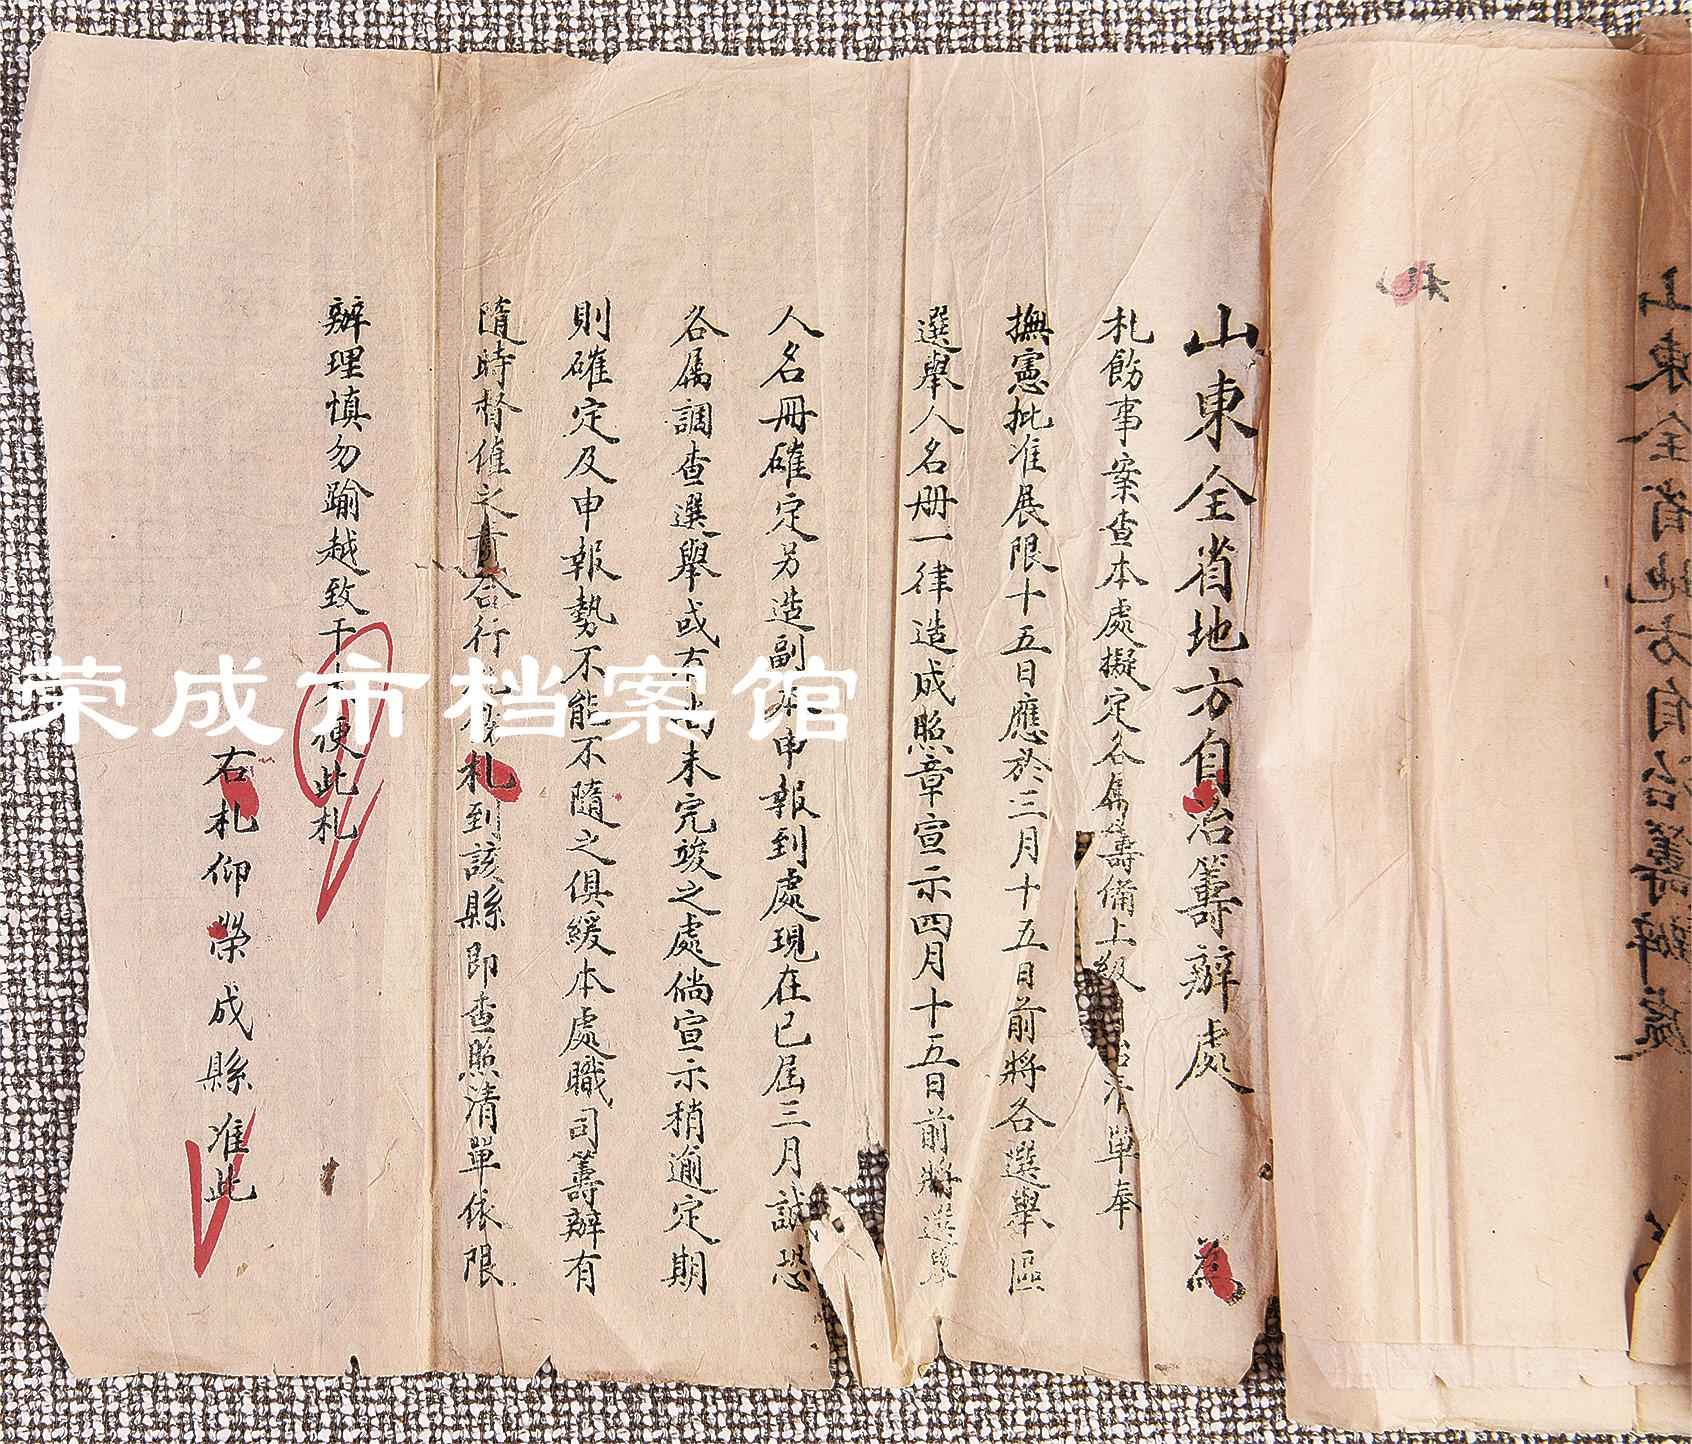 山東全省地方自治籌辦處 為
札飭事案查本處擬定各屬籌備上級治清單奉
撫憲批准展限十五日應於三月十五日前將各選舉區
選舉人名册一律造成照章宣示四月十五日前將選舉
人名冊確定另造副本申報到處現在已屆三月誠恐
各屬調查選舉或有尚未完竣之處倘宣示稍逾定期
則確定及申報勢不能不隨之俱緩本處職司籌辦有
隨時督催之責合行札到該縣即查照清單依限
辦理慎勿踰越致干便此札
右札仰榮成縣准此
札
山東全省地方自治籌辦處
荣成市档案馆